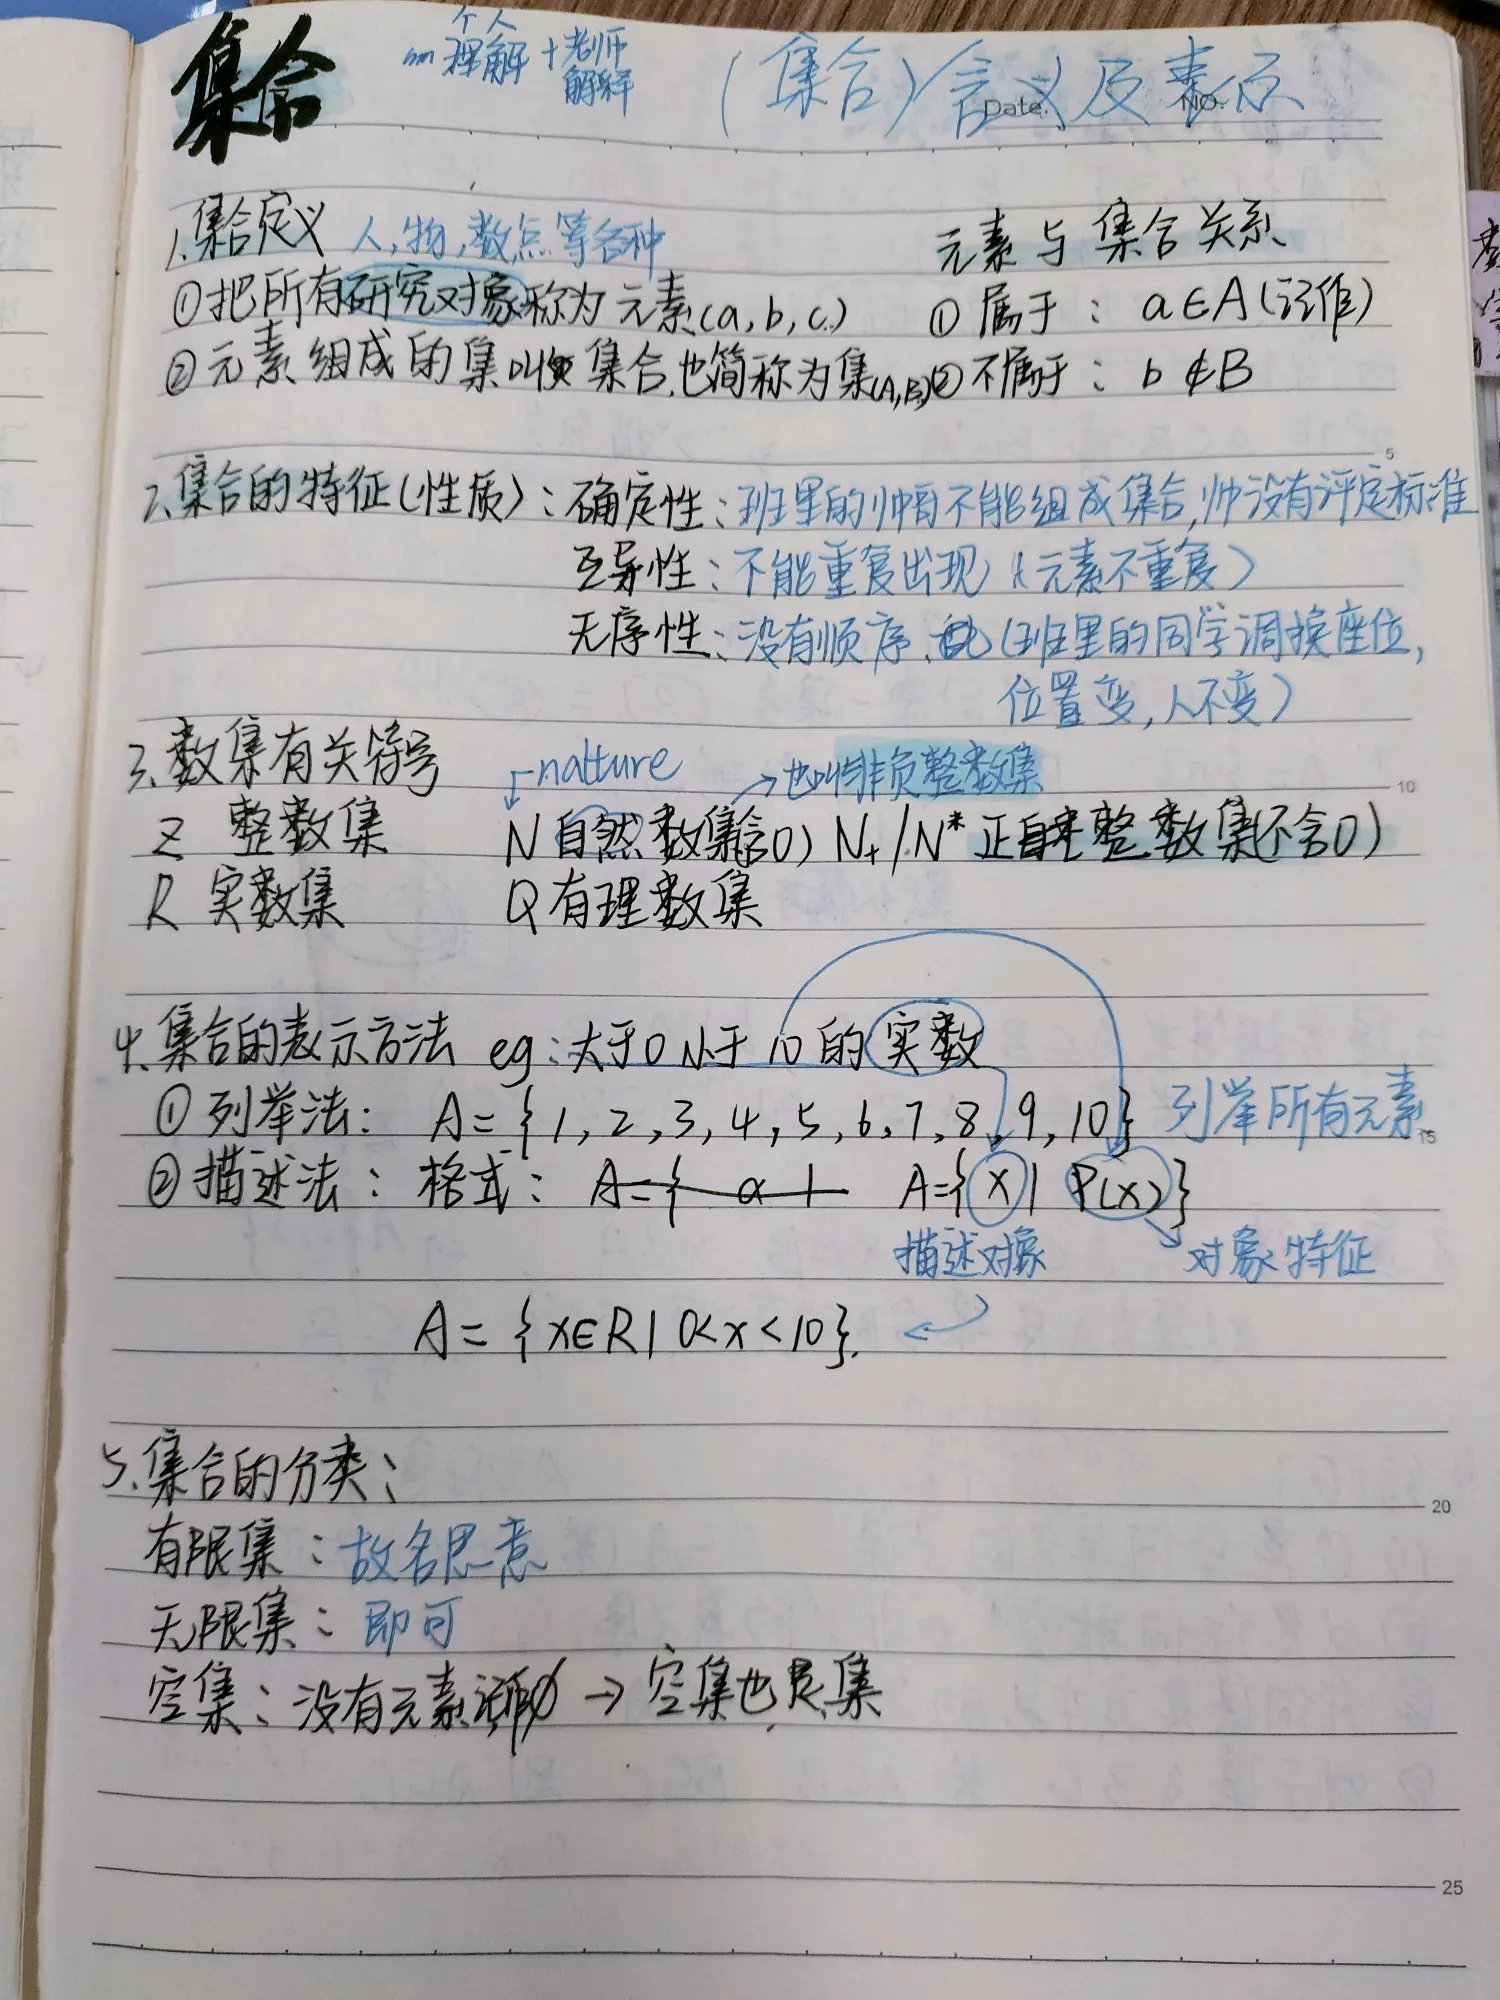 集合
个人
理解+老师
解释
(集合)含义及表示
Date. NO.
1.集合定义 人,物,数点等各种
元素与集合关系
①把所有研究对象称为元素(a,b,c.)
①属于: a∈A(记作)
②元素组成的集叫做集合.也简称为集(A,B)
②不属于: b∉B
5
2.集合的特征(性质):确定性:班里的帅哥不能组成集合,帅没有评定标准
互异性:不能重复出现(元素不重复)
无序性:没有顺序.(班里的同学调换座位,
位置变,人不变)
3.数集有关符号
natture
→也叫非负整数集
10
Z 整数集 N 自然数集(含0) N+/N* 正整数集(不含0)
R 实数集 Q 有理数集
4.集合的表示方法 eg:大于0小于10的实数
①列举法: A={1,2,3,4,5,6,7,8,9,10} 列举所有元素
15
②描述法:格式: A={ a | A={x| P(x)}
描述对象 对象特征
A={x∈R|0<x<10}.
5.集合的分类:
20
有限集:故名思意
无限集:即可
空集:没有元素记作∅→空集也是集
25